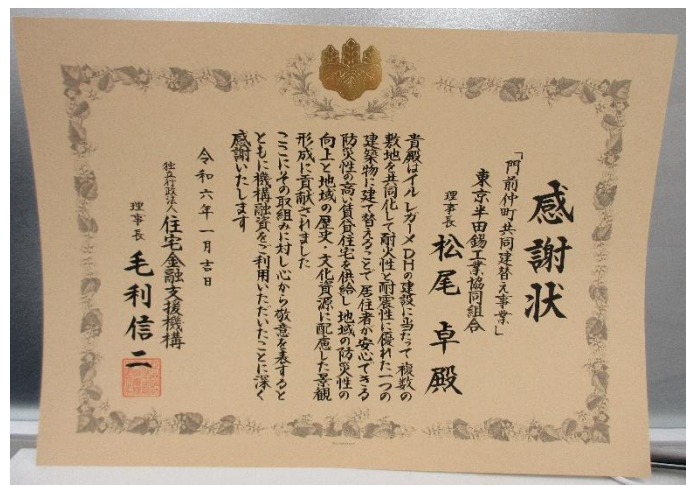 感謝状
「門前仲町共同建替え事業」
東京半田錫工業協同組合
理事長 松尾 卓 殿
貴殿はイル レガーメDHの建設に当たって複数の
敷地を共同化して耐火性と耐震性に優れた一つの
建築物に建て替えることで居住者が安心できる
防災性の高い賃貸住宅を供給し地域の防災性の
向上と地域の歴史・文化資源に配慮した景観
形成に貢献されました
ここにその取組みに対し心から敬意を表すると
ともに機構融資をご利用いただいたことに深く
感謝いたします
令和六年一月吉日
独立行政法人 住宅金融支援機構
理事長 毛利信二